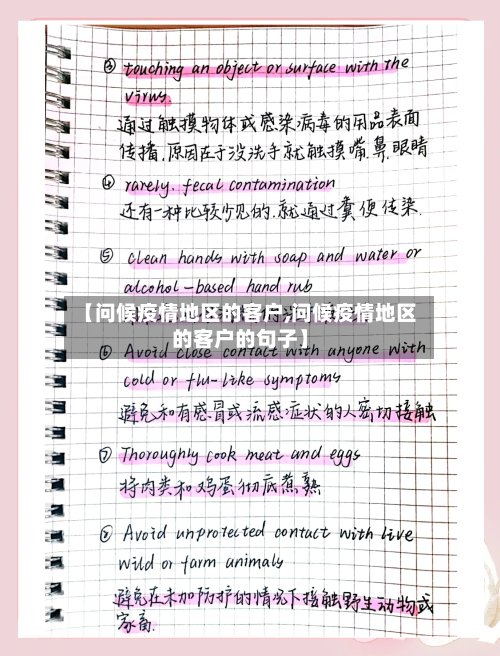 ③ touching an object or surface with the
virus.
通过触摸物体或感染病毒的用品表面
传播,原因在于没洗手就触摸嘴,鼻,眼睛
④ rarely, fecal contamination
还有一种比较少见的,就通过粪便传染.
⑤ clean hands with soap and water or
alcohol-based hand rub
【问候疫情地区的客户,问候疫情地区
的客户的句子】
⑥ Avoid close contact with anyone with
cold or flu-like symptoms
避免和有感冒或流感症状的人密切接触
⑦ Thoroughly cook meat and eggs
将肉类和鸡蛋彻底煮熟
⑧ Avoid unprotected contact with live
wild or farm animals
避免在未加防护的情况下接触野生动物或
家畜.